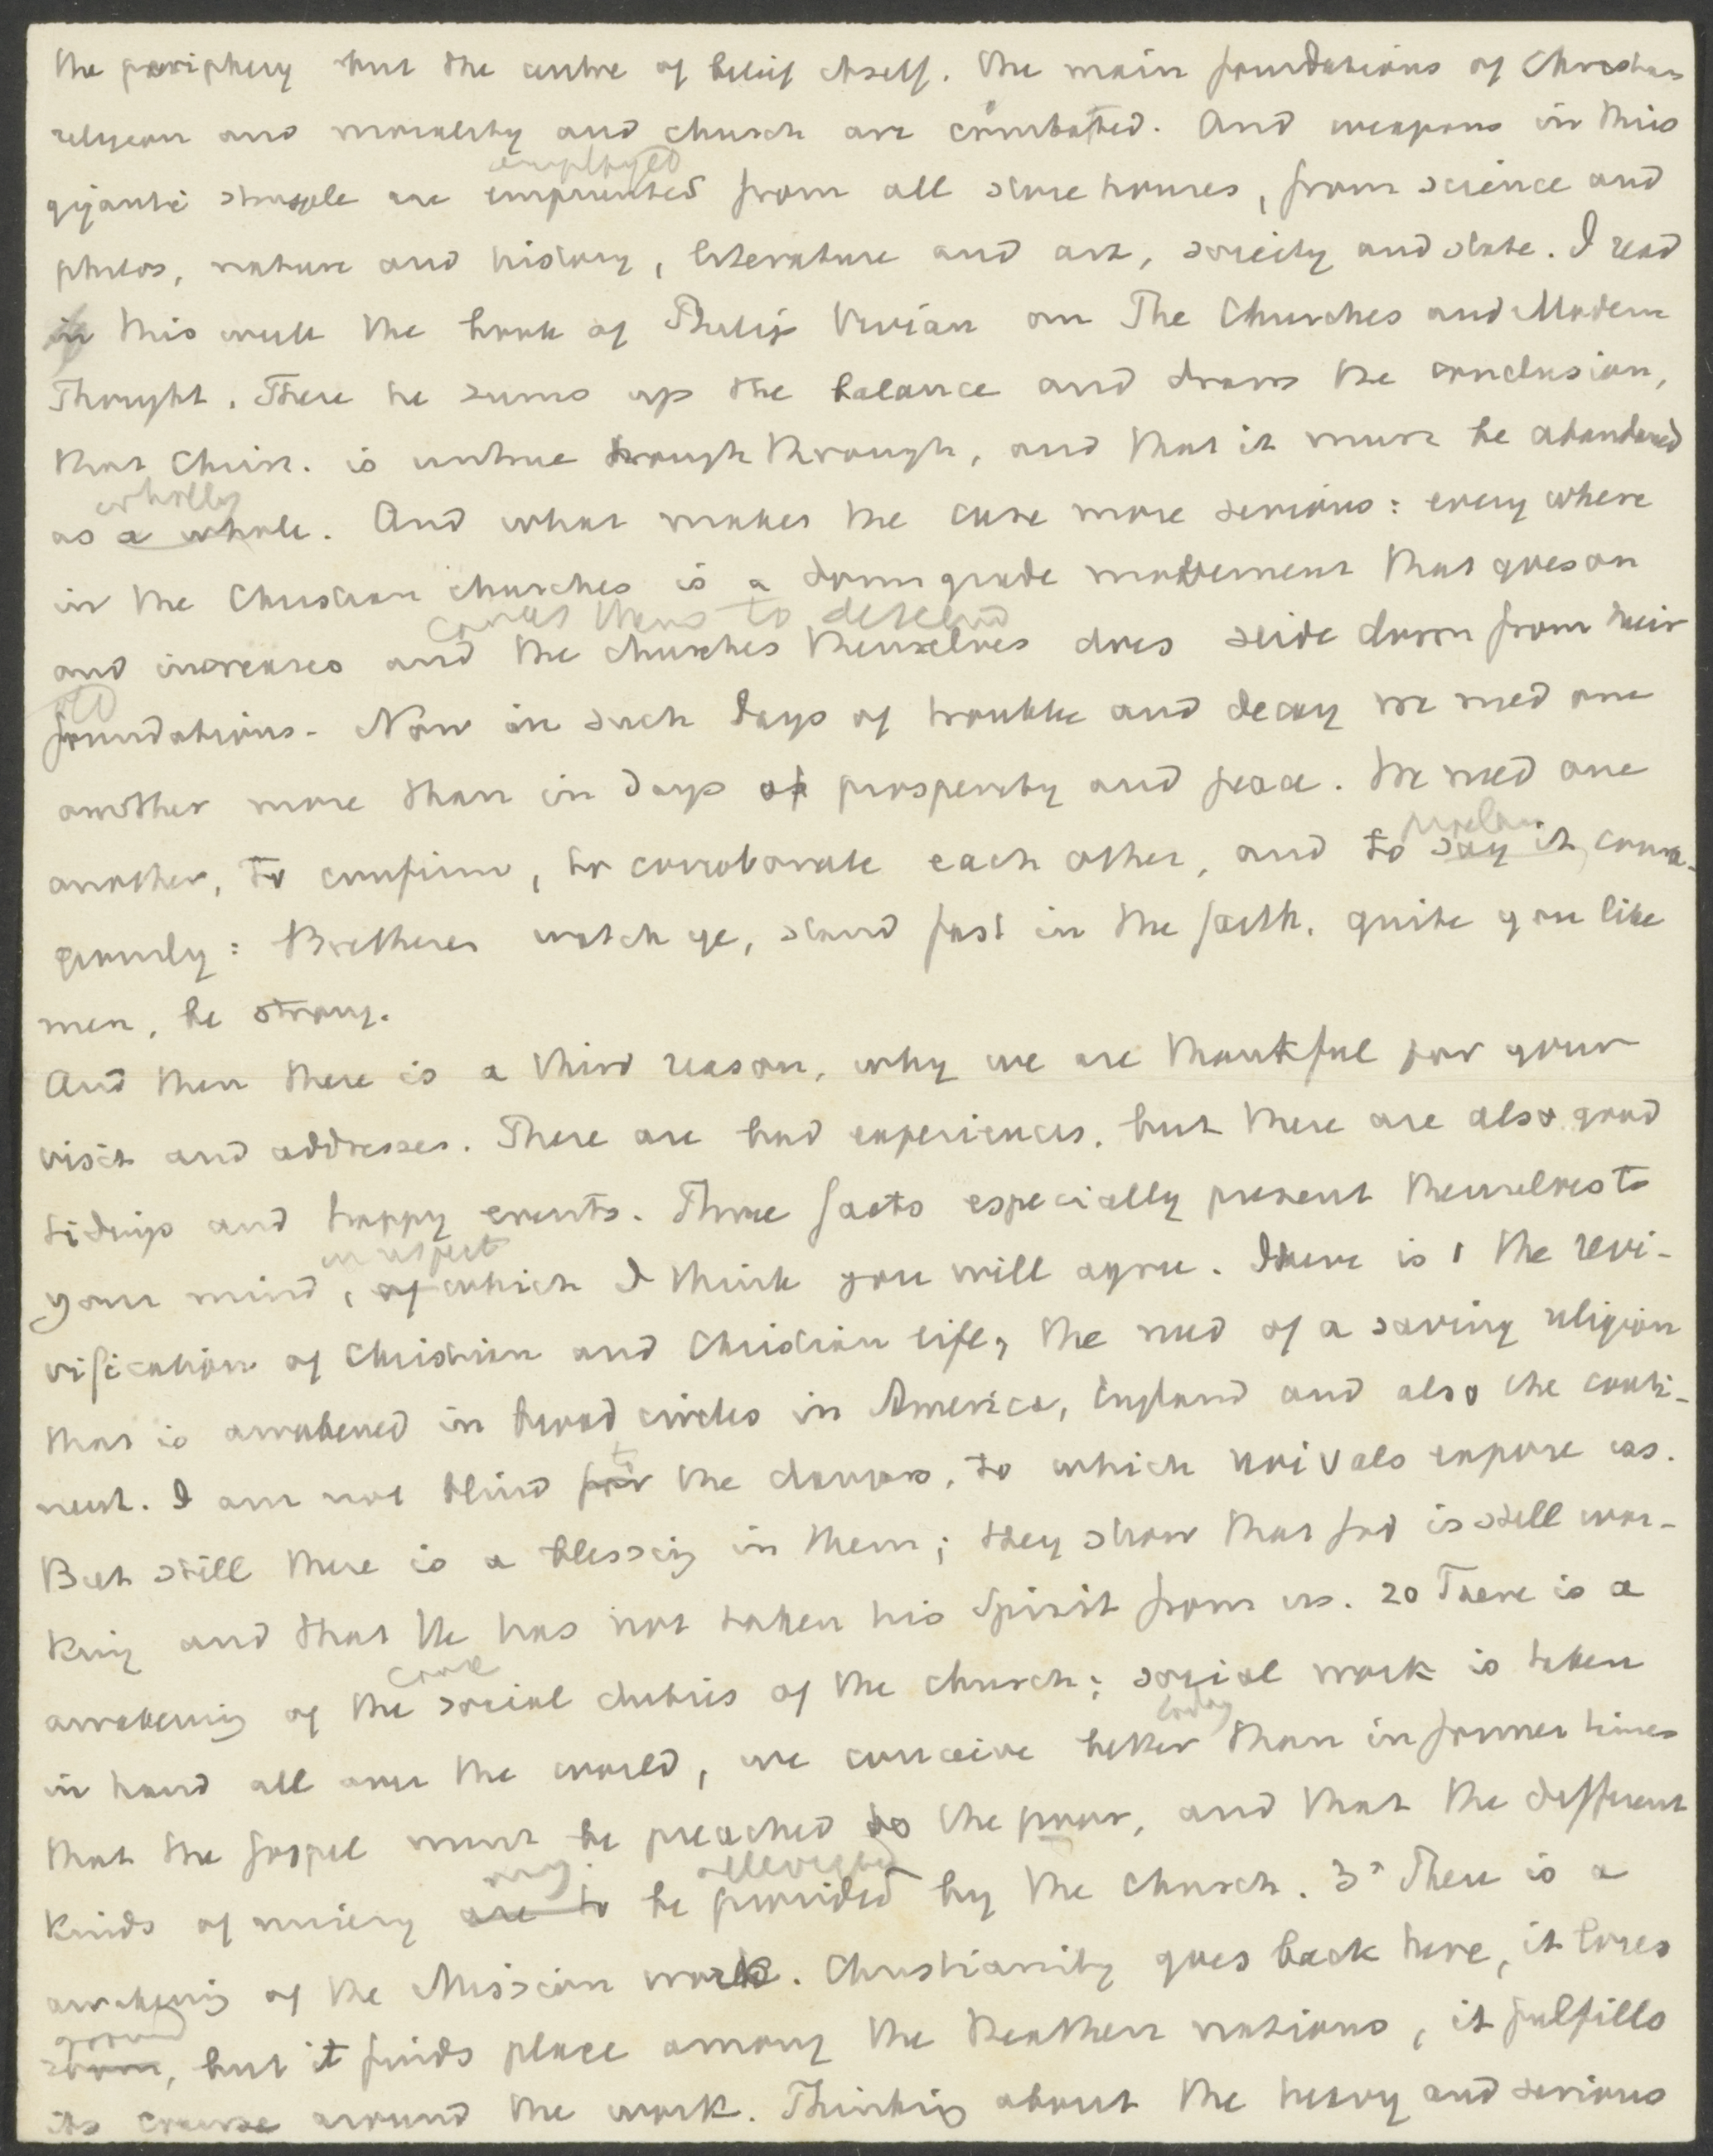 the periphery but the centre of belief itself. The main foundations of Christian
religion and morality and church are combatted. And weapons in this
employed
gigantic struggle are emprunted from all storehouses, from science and
philos, nature and history, literature and art, society and state. I read
in this week the book of Philip Vivian on The Churches and Modern
Thought. There he sums up the balance and draws the conclusion,
that Christ. is untrue through through, and that it must be abandoned
wholly
as a whole. And what makes the case more serious: every where
in the Christian churches is a down grade movement that goes on
causes them to descend
and increases and the churches themselves does slide down from their
old
foundations. Now in such days of trouble and decay we need one
another more than in days of prosperity and peace. We need one
proclaim
another, to confirm, to corroborate each other, and to say it coura-
geously: Brethren watch ye, stand fast in the faith, quite you like
men, be strong.
And then there is a third reason, why we are thankful for your
visit and addresses. There are bad experiences, but there are also good
tidings and happy events. Three facts especially present themselves to
in respect
your mind, of which I think you will agree. There is 1 the revi-
vification of Christian and Christian life, the need of a saving religion
that is awakened in broad circles in America, England and also the conti-
to
nent. I am not blind for the dangers, to which revivals expose us.
But still there is a blessing in them; they show that God is still wor-
king and that He has not taken his Spirit from us. 2o There is a
awakening of the social duties of the church; social work is taken
today
in hand all over the world, we conceive better than in former times
that the gospel must be preached to the poor, and that the different
may alleviated
kinds of misery are to be provided by the church. 3o There is a
awakening of the Mission work. Christianity goes back here, it loses
ground
room, but it finds place among the heathen nations, it fulfills
its course around the work. Thinking about the heavy and serious